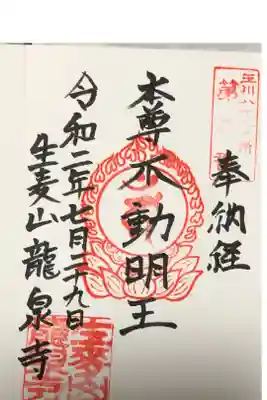 奉納経
本尊不動明王
令和二年七月二十九日
生麦山龍泉寺